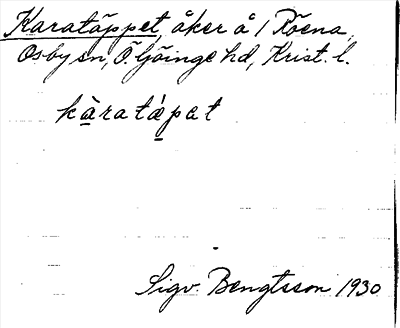 Karatäppet, åker å 1 Röena,
Osby sn, Ö. Göinge hd, Krist. l.
kàratápat
Sigv. Bengtsson 1930